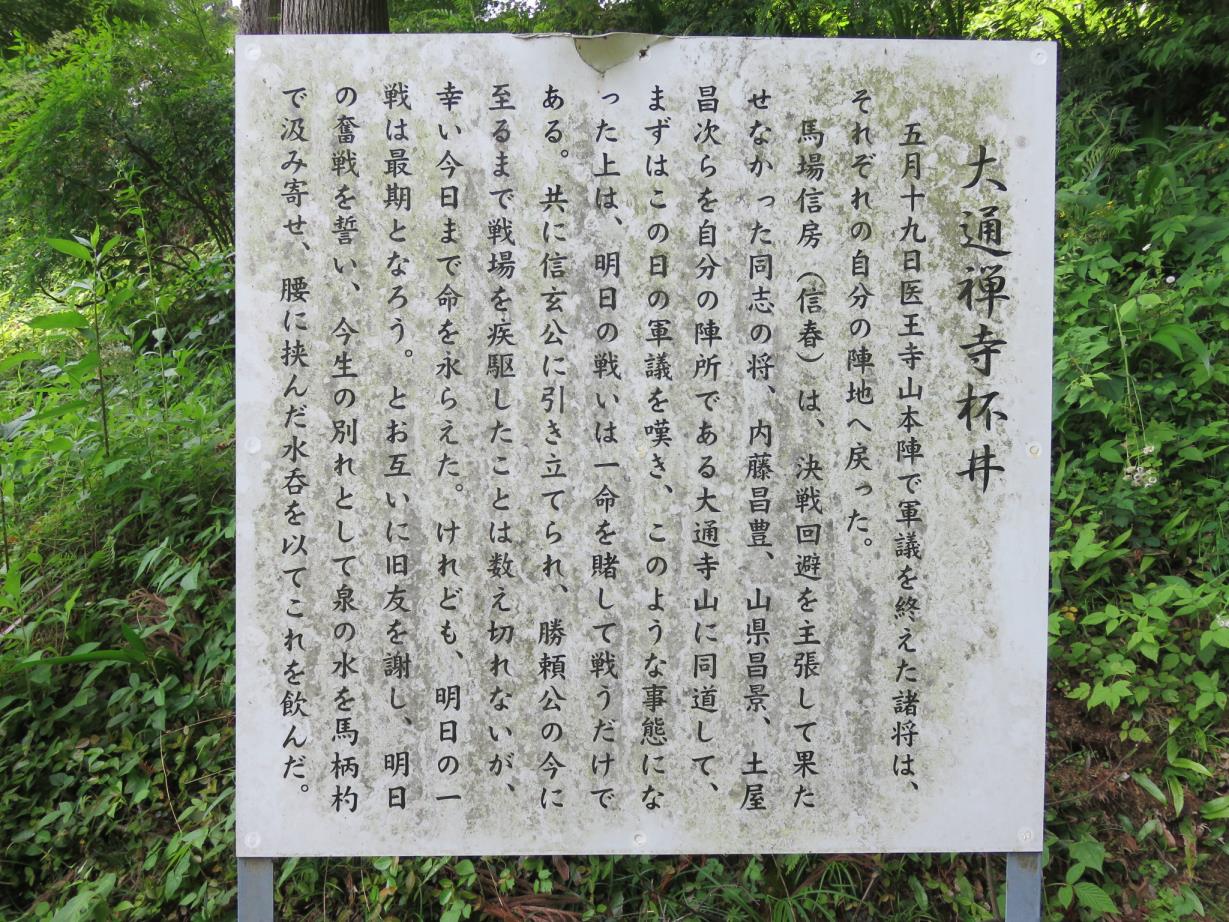 大通禅寺杯井
五月十九日医王寺山本陣で軍議を終えた諸将は、
それぞれの自分の陣地へ戻った。
馬場信房（信春）は、決戦回避を主張して果た
せなかった同志の将、内藤昌豊、山県昌景、土屋
昌次らを自分の陣所である大通寺山に同道して、
まずはこの日の軍議を嘆き、このような事態にな
った上は、明日の戦いは一命を賭して戦うだけで
ある。共に信玄公に引き立てられ、勝頼公の今に
至るまで戦場を疾駆したことは数え切れないが、
幸い今日まで命を永らえた。けれども、明日の一
戦は最期となろう。とお互いに旧友を謝し、明日
の奮戦を誓い、今生の別れとして泉の水を馬柄杓
で汲み寄せ、腰に挟んだ水呑を以てこれを飲んだ。